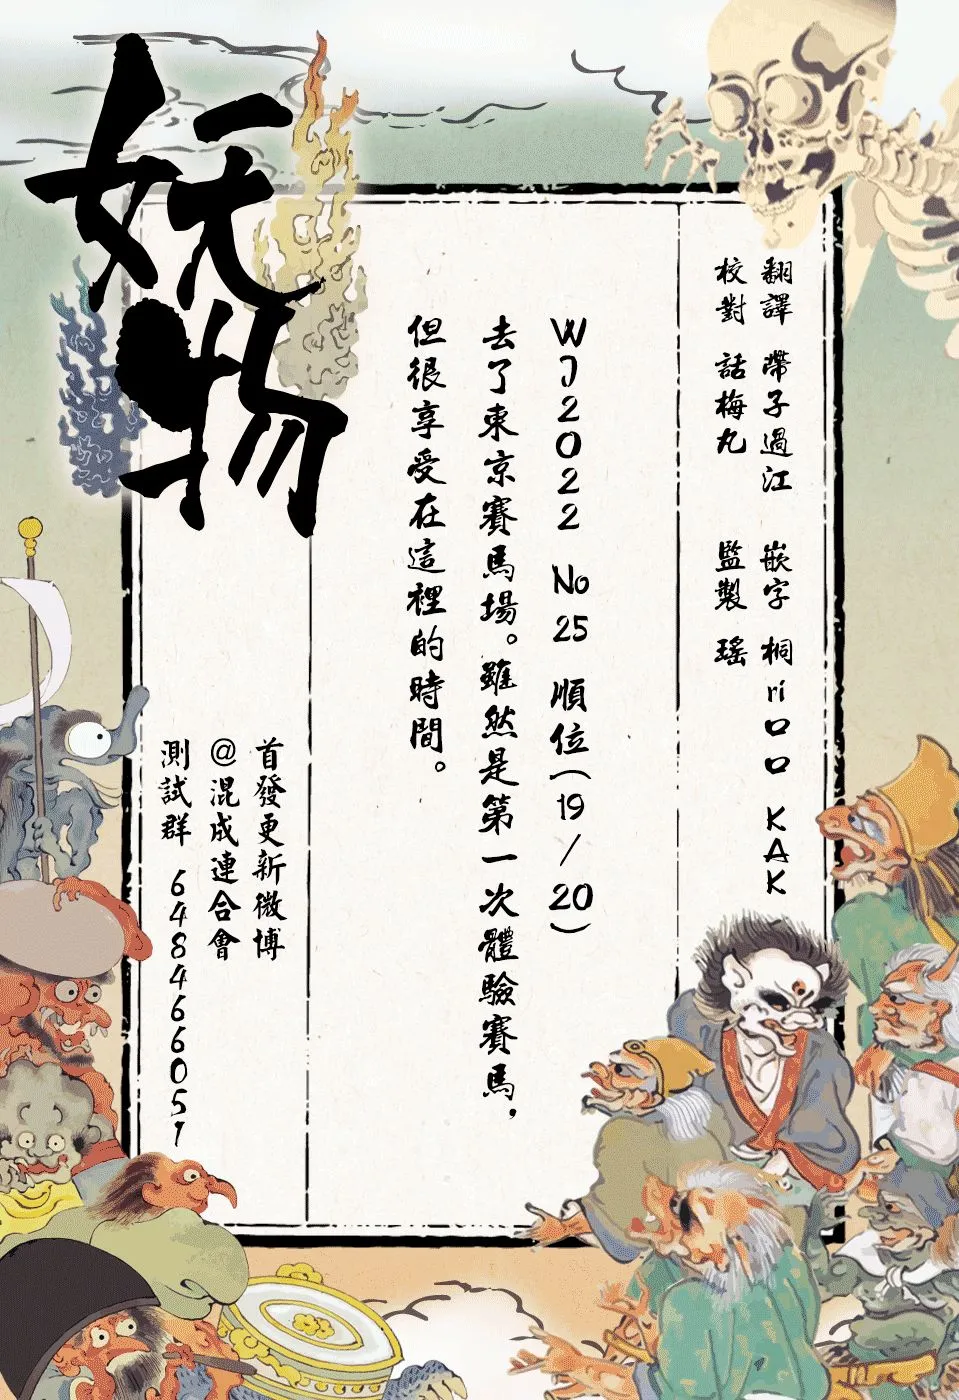 妖物
翻譯 帶子過江 嵌字 桐ri口口 KAK
校對 話梅丸 監製 瑤
WJ2022 No25 順位(19/20)
去了東京賽馬場。雖然是第一次體驗賽馬,
但很享受在這裡的時間。
首發更新微博
@混成連合會
測試群 648466051